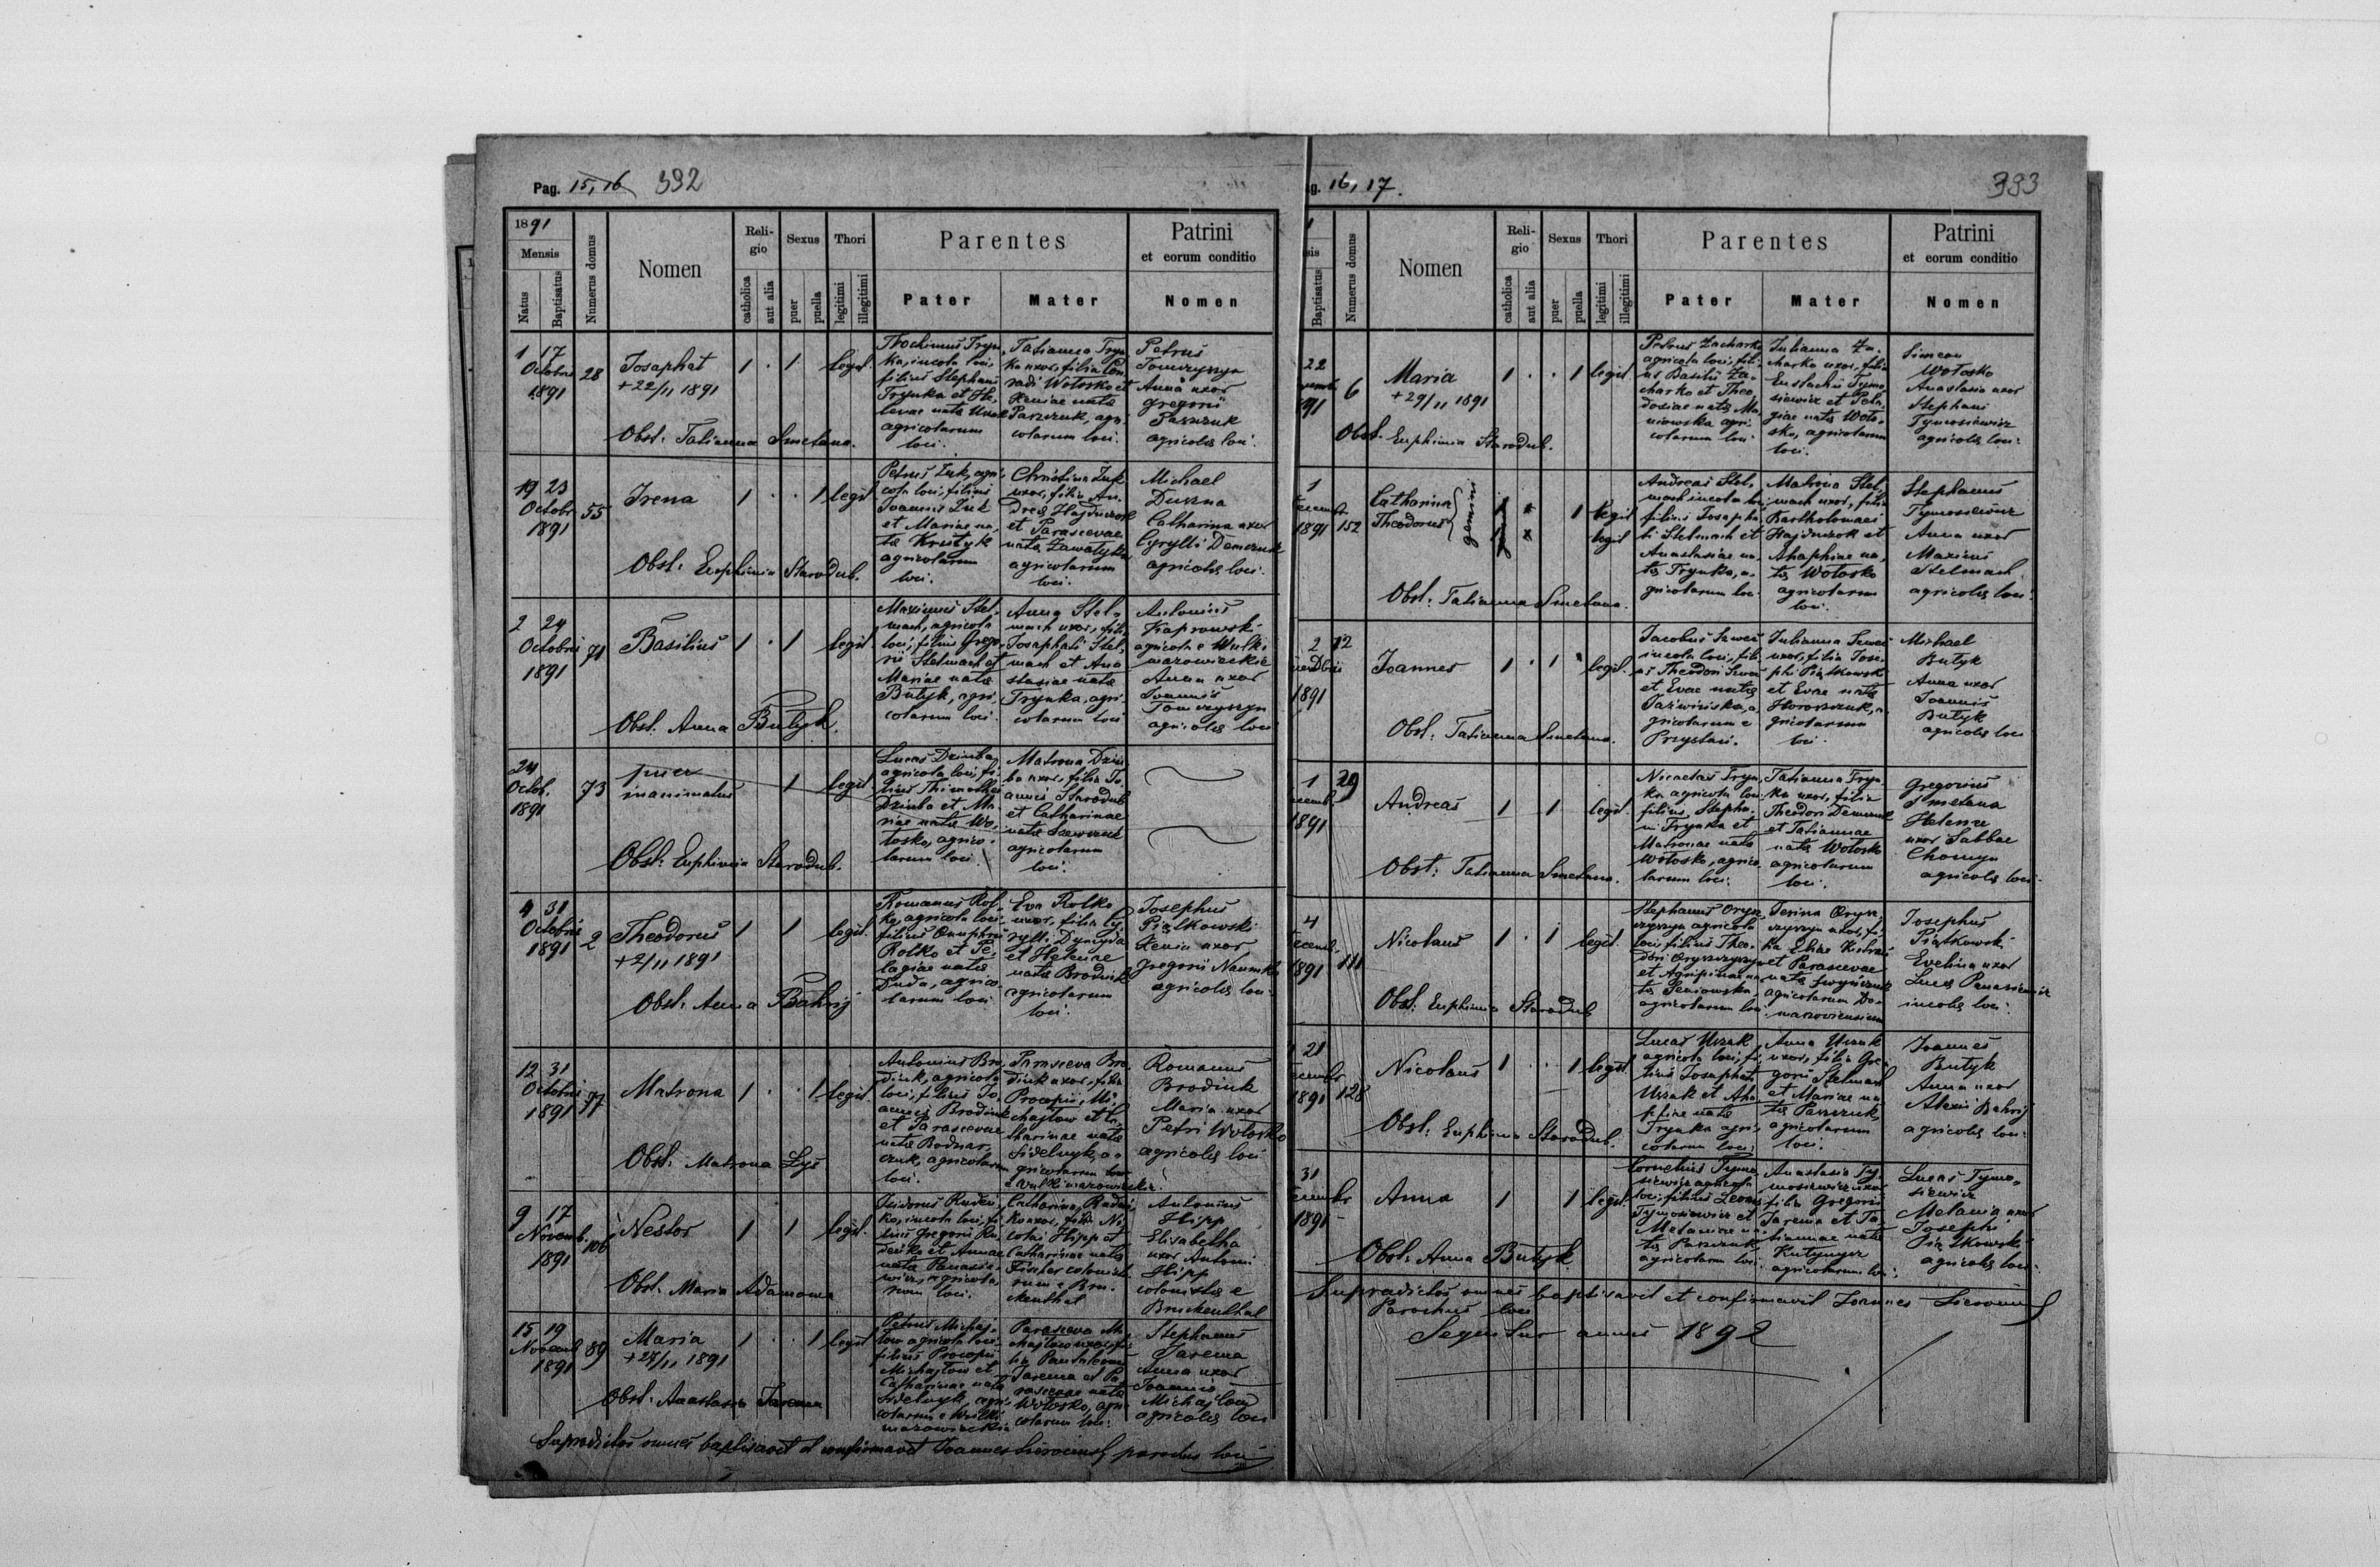 Pag. 15, 16 392
1891
Mensis
Natus
Baptisatus
Numerus domus
Nomen
Religio
catholica
aut alia
Sexus
puer
puella
Thori
legitimi
illegitimi
Parentes
Pater
Mater
Patrini
et eorum conditio
Nomen
1 17
Octobris
1891
28
Josaphat
+ 22/11 1891
1 . 1 legit.
Obst. Tatianna Smetana.
filius Stephani
Trynka et He-
lenae nata
agricolarum
loci.
Tatianna Tryn-
ka uxor, filia Con-
radi Wołosko et
Xeniae nata
Paszczuk, agri-
colarum loci.
Petrus
Tomczyszyn
Anna uxor
Gregorii
Paszczuk
agricolae loci.
19 23
Octobr.
1891
55
Irena
1 . . 1 legit.
Obst. Euphimia Starodub.
Petrus Żuk agri-
cola loci, filius
Joannis Żuk
et Mariae na-
ta
agricolarum
loci.
Christina Żuk
uxor, filia An-
dreae Hajduczok
et Parascevae
nata
agricolarum
loci.
Michael
Catharina uxor
Cyrylli Demczuk
agricolae loci.
2 24
Octobris
1891
71
Basilius
1 . 1 legit.
Obst. Anna Butyk.
Maximus Stel-
mach, agricola
loci, filius Grego-
rii Stelmach et
Mariae nata
Butyk, agri-
colarum loci.
Anna Stel-
mach uxor, filia
Josaphati Stel-
mach et Ana-
stasiae nata
Trynka, agri-
colarum loci
Antonius
Kaprowski
agricola e Wulki
mazowieckie
Anna uxor
Joannis
Tomczyszyn
agricolae loci
24
Octob.
1891
73
puer
inanimatus
1 legit.
Obst. Euphimia Starodub.
Lucas Dziuba
agricola loci, fi-
lius Thimothei
Dziuba et Ma-
riae nata Wo-
łosko, agrico-
larum loci.
Matrona Dziu-
ba uxor, filia Jo-
annis Starodub
et Catharinae
nata Szewczuk
agricolarum
loci.
4 31
Octobris
1891
2
Theodorus
+ 2/11 1891
1 1 legit.
Obst. Anna Bahrij
Romanus Rol-
ko, agricola loci
filius Onuphrii
Rolko et Pe-
lagiae nata
Duda, agrico-
larum loci
Eva Rolko
uxor, filia Cy-
rylli Dynyda
et Helenae
nata Brodiuk
agricolarum
loci.
Josephus
Piątkowski
Xenia uxor
Gregorii Naumko
agricolae loci.
12 31
Octobris
1891
77
Matrona
1 . . 1 legit.
Obst. Matrona Łyś
Antonius Bro-
diuk, agricola
loci, filius Jo-
annis Brodiuk
et Parascevae
nata Bodnar-
czuk, agricolarum
loci.
Parasceva Bro-
diuk uxor, filia
Procopii Mi-
chajłow et Ca-
tharinae nata
Sidelnyk, a-
gricolarum
e Wulki mazowieckie.
Romanus
Brodiuk
Maria uxor
Petri Wołosko
agricolae loci
9 17
Novemb.
1891
106
Nestor
1 1 legit.
Obst. Maria Adamowa
Isidorus Rudeń-
ko, incola loci, fi-
lius Gregorii Ru-
deńko et Annae
nata Panasie-
wicz, agricola-
rum loci.
Catharina Rudeń-
ko uxor, filia Ni-
colai Hipp et
Catharinae nata
Fischer colonista-
rum e Bru-
ckenthal
Antonius
Hipp
Elisabetha
uxor Antonii
Hipp
colonistae e
Bruckenthal
15 19
Novemb.
1891
89
Maria
+ 27/11 1891
1 . . 1 legit
Obst. Anastasia Jarema
Petrus Michaj-
łow agricola loci
filius Procopii
Michajłow et
Catharinae nata
Sidelnyk, agri-
colarum e Wulki
mazowieckie
Parasceva Mi-
chajłow uxor, fi-
lia Pantaleonis
Jarema et Pa-
rascevae nata
Wołosko, agri-
colarum loci.
Stephanus
Jarema
Anna uxor
Joannis
Michajłow
agricolae loci
Supradictos omnes baptisavit et confirmavit Joannes parochus loci
16, 17. 393
Baptisatus
Numerus domus
Nomen
Religio
catholica
aut alia
Sexus
puer
puella
Thori
legitimi
illegitimi
Parentes
Pater
Mater
Patrini
et eorum conditio
Nomen
22
6
Maria
+ 29/11 1891
1 . . 1 legit
Obst. Euphimia Starodub.
Petrus Zacharko
agricola loci, fili-
us Basilii Za-
charko et Theo-
dosiae nata
agri-
colarum loci
Julianna Za-
charko uxor, filia
Eustachii Tymo-
siewicz et Pela-
giae nata Woło-
sko, agricolarum
loci.
Simeon
Wołosko
Anastasia uxor
Stephani
Tymosiewicz
agricolae loci.
1
1891
152
Catharina
Theodorus
gemini
1 legit
legit
Obst. Tatianna Smetana.
Andreas Stel-
mach incola loci
filius Josapha-
ti Stelmach et
Anastasiae na-
ta Trynka, a-
gricolarum loci
Matrona Stel-
mach uxor, filia
Bartholomaei
Hajduczok et
Ahaphiae na-
ta Wołosko
agricolarum
loci.
Stephanus
Tymosiewicz
Anna uxor
Maximi
Stelmach
agricolae loci.
2 12
1891
Joannes
1 . 1 legit.
Obst. Tatianna Smetana.
Jacobus Szweć
incola loci, fili-
us Theodori Szweć
et Evae nata
a-
gricolarum e
Przystań.
Julianna Szweć
uxor, filia Jose-
phi Piątkowski
et Evae nata
a-
gricolarum
loci.
Michael
Butyk
Anna uxor
Joannis
Butyk
agricolae loci
1 29
1891
Andreas
1 1 legit.
Obst. Tatianna Smetana.
Nicaetas Tryn-
ka agricola loci
filius Stepha-
ni Trynka et
Matronae nata
Wołosko, agrico-
larum loci.
Tatianna Tryn-
ka uxor, filia
Theodori Demczuk
et Tatiannae
nata Wołosko
agricolarum
loci.
Gregorius
Smetana
Helena
uxor Sabbae
Chomyn
agricolae loci.
4
1891
111
Nicolaus
1 . 1 legit.
Obst. Euphimia Starodub
Stephanus
agricola
loci, filius Theo-
dori
et Agripinae na-
ta
agricolarum loci
uxor, fi-
lia Eliae
et Parascevae
nata
agricolarum
Josephus
Piątkowski
Evelina uxor
Lucae Panasiewicz
incolae loci.
21
1891
128
Nicolaus
1 . . 1 legit.
Obst. Euphimia Starodub.
Lucas
agricola loci, fi-
lius Josaphati
et Aha-
phiae nata
Trynka agri-
colarum loci
Anna
uxor, filia Gre-
gorii Stelmach
et Mariae na-
ta Paszczuk,
agricolarum
loci.
Joannes
Butyk
Anna uxor
Alexii Bahrij
agricolae loci.
31
1891
Anna
1 1 legit.
Obst. Anna Butyk
Cornelius Tymo-
siewicz agricola
loci, filius Leonis
Tymosiewicz et
Melaniae na-
ta Paszczuk
agricolarum loci.
Anastasia Ty-
mosiewicz uxor
filia Gregorii
Jarema et Ta-
tiannae nata
agricolarum loci.
Lucas Tymo-
siewicz
Melania uxor
Josephi
Piątkowski
agricolae loci.
Supradictos omnes baptisavit et confirmavit Joannes
Parochus loci
Sequitur annus 1892